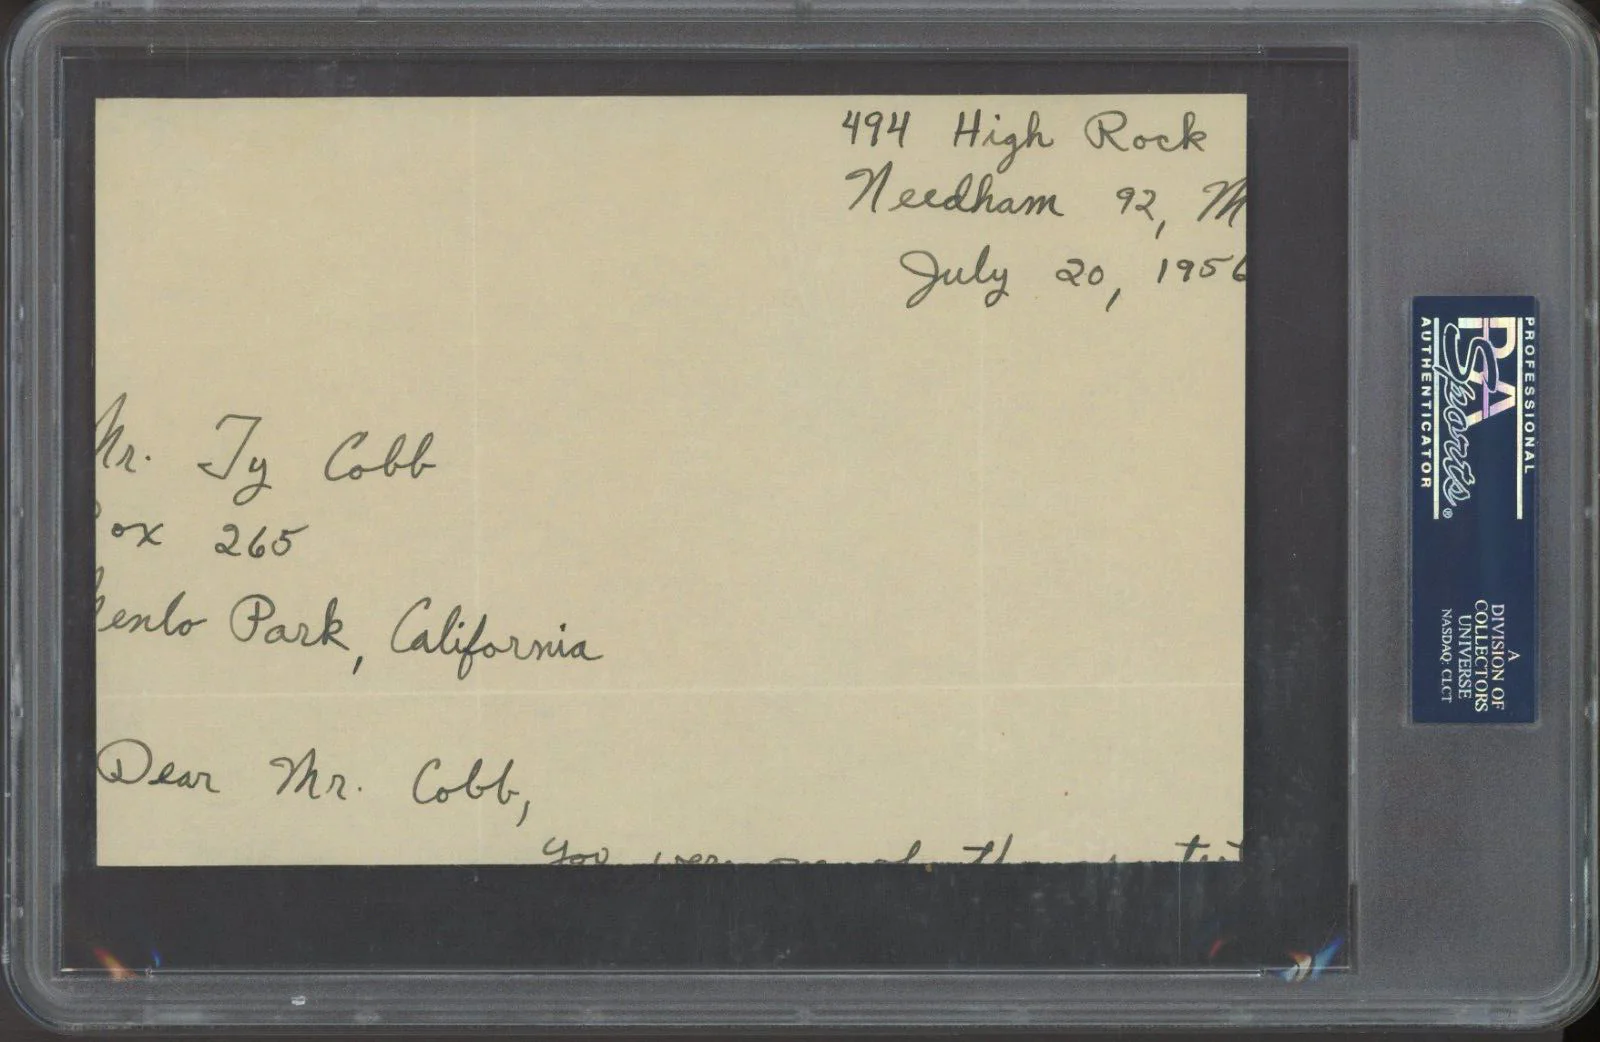 494 High Rock
Needham 92, M
July 20, 1956
Mr. Ty Cobb
Box 265
Menlo Park, California
Dear Mr. Cobb,
You were one of the
PROFESSIONAL
PSA
Sports®
AUTHENTICATOR
A
DIVISION OF
COLLECTORS
UNIVERSE
NASDAQ: CLCT